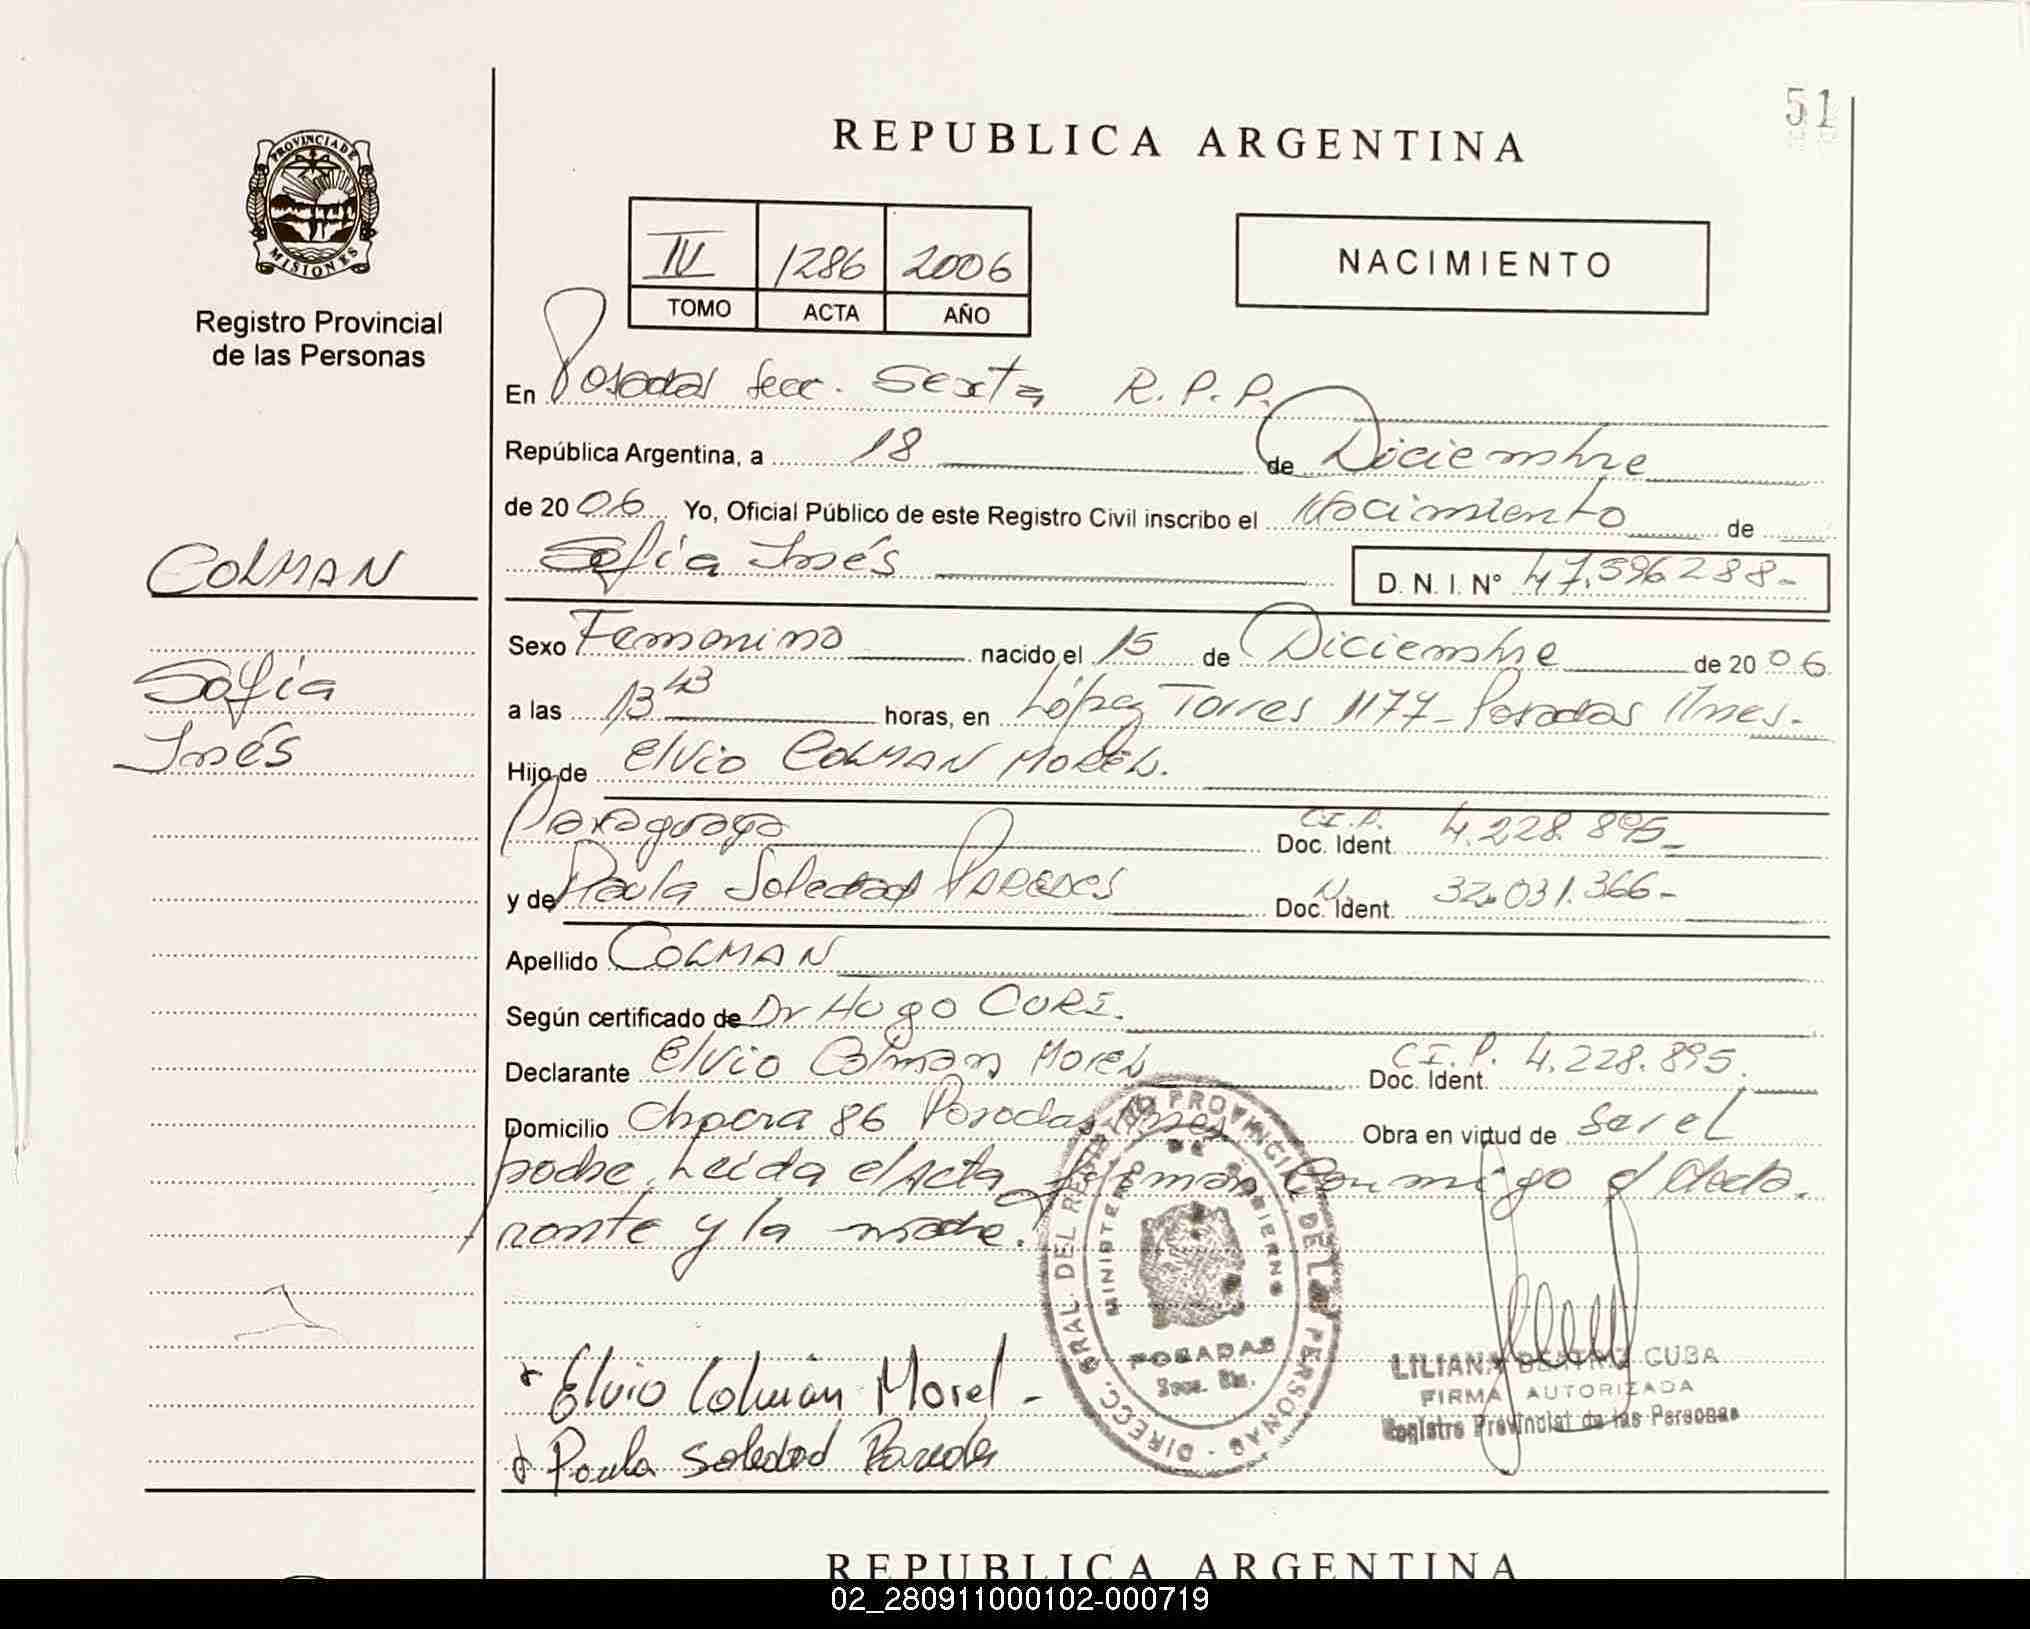 51
REPUBLICA ARGENTINA
PROVINCIA DE
MISIONES
Registro Provincial
de las Personas
IV 1286 2006
TOMO ACTA AÑO
NACIMIENTO
En Posadas Secc. Sexta R.P.P.
República Argentina, a 18 de Diciembre
de 2006 Yo, Oficial Público de este Registro Civil inscribo el Nacimiento de
COLMAN
Sofía Inés
D.N.I. N° 47.596288-
Sexo Femenino nacido el 15 de Diciembre de 2006.
Sofía
a las 13 43 horas, en López Torres 1177- Posadas Mnes.-
Inés
Hijo de Elvio COLMAN MOREL.
Paraguayo C.I.P. Doc. Ident. 4.228.895-
y de Paula Soledad PAREDES Doc. Ident. N. 32.031.366-
Apellido COLMAN
Según certificado de Dr Hugo CURI.
Declarante Elvio Colman Morel Doc. Ident. C.I.P. 4.228.895.
Domicilio Chacra 86 Posadas Mnes Obra en virtud de ser el
padre. Leída el Acta firman conmigo el decla-
rante y la madre.
DIRECC. GRAL. DEL REGISTRO PROVINCIAL DE LAS PERSONAS
MINISTERIO DE GOBIERNO
POSADAS
Secc. 6ta.
Elvio Colmán Morel -
Paula Soledad Paredes
LILIANA BEATRIZ CUBA
FIRMA AUTORIZADA
Registro Provincial de las Personas
REPUBLICA ARGENTINA
02_280911000102-000719